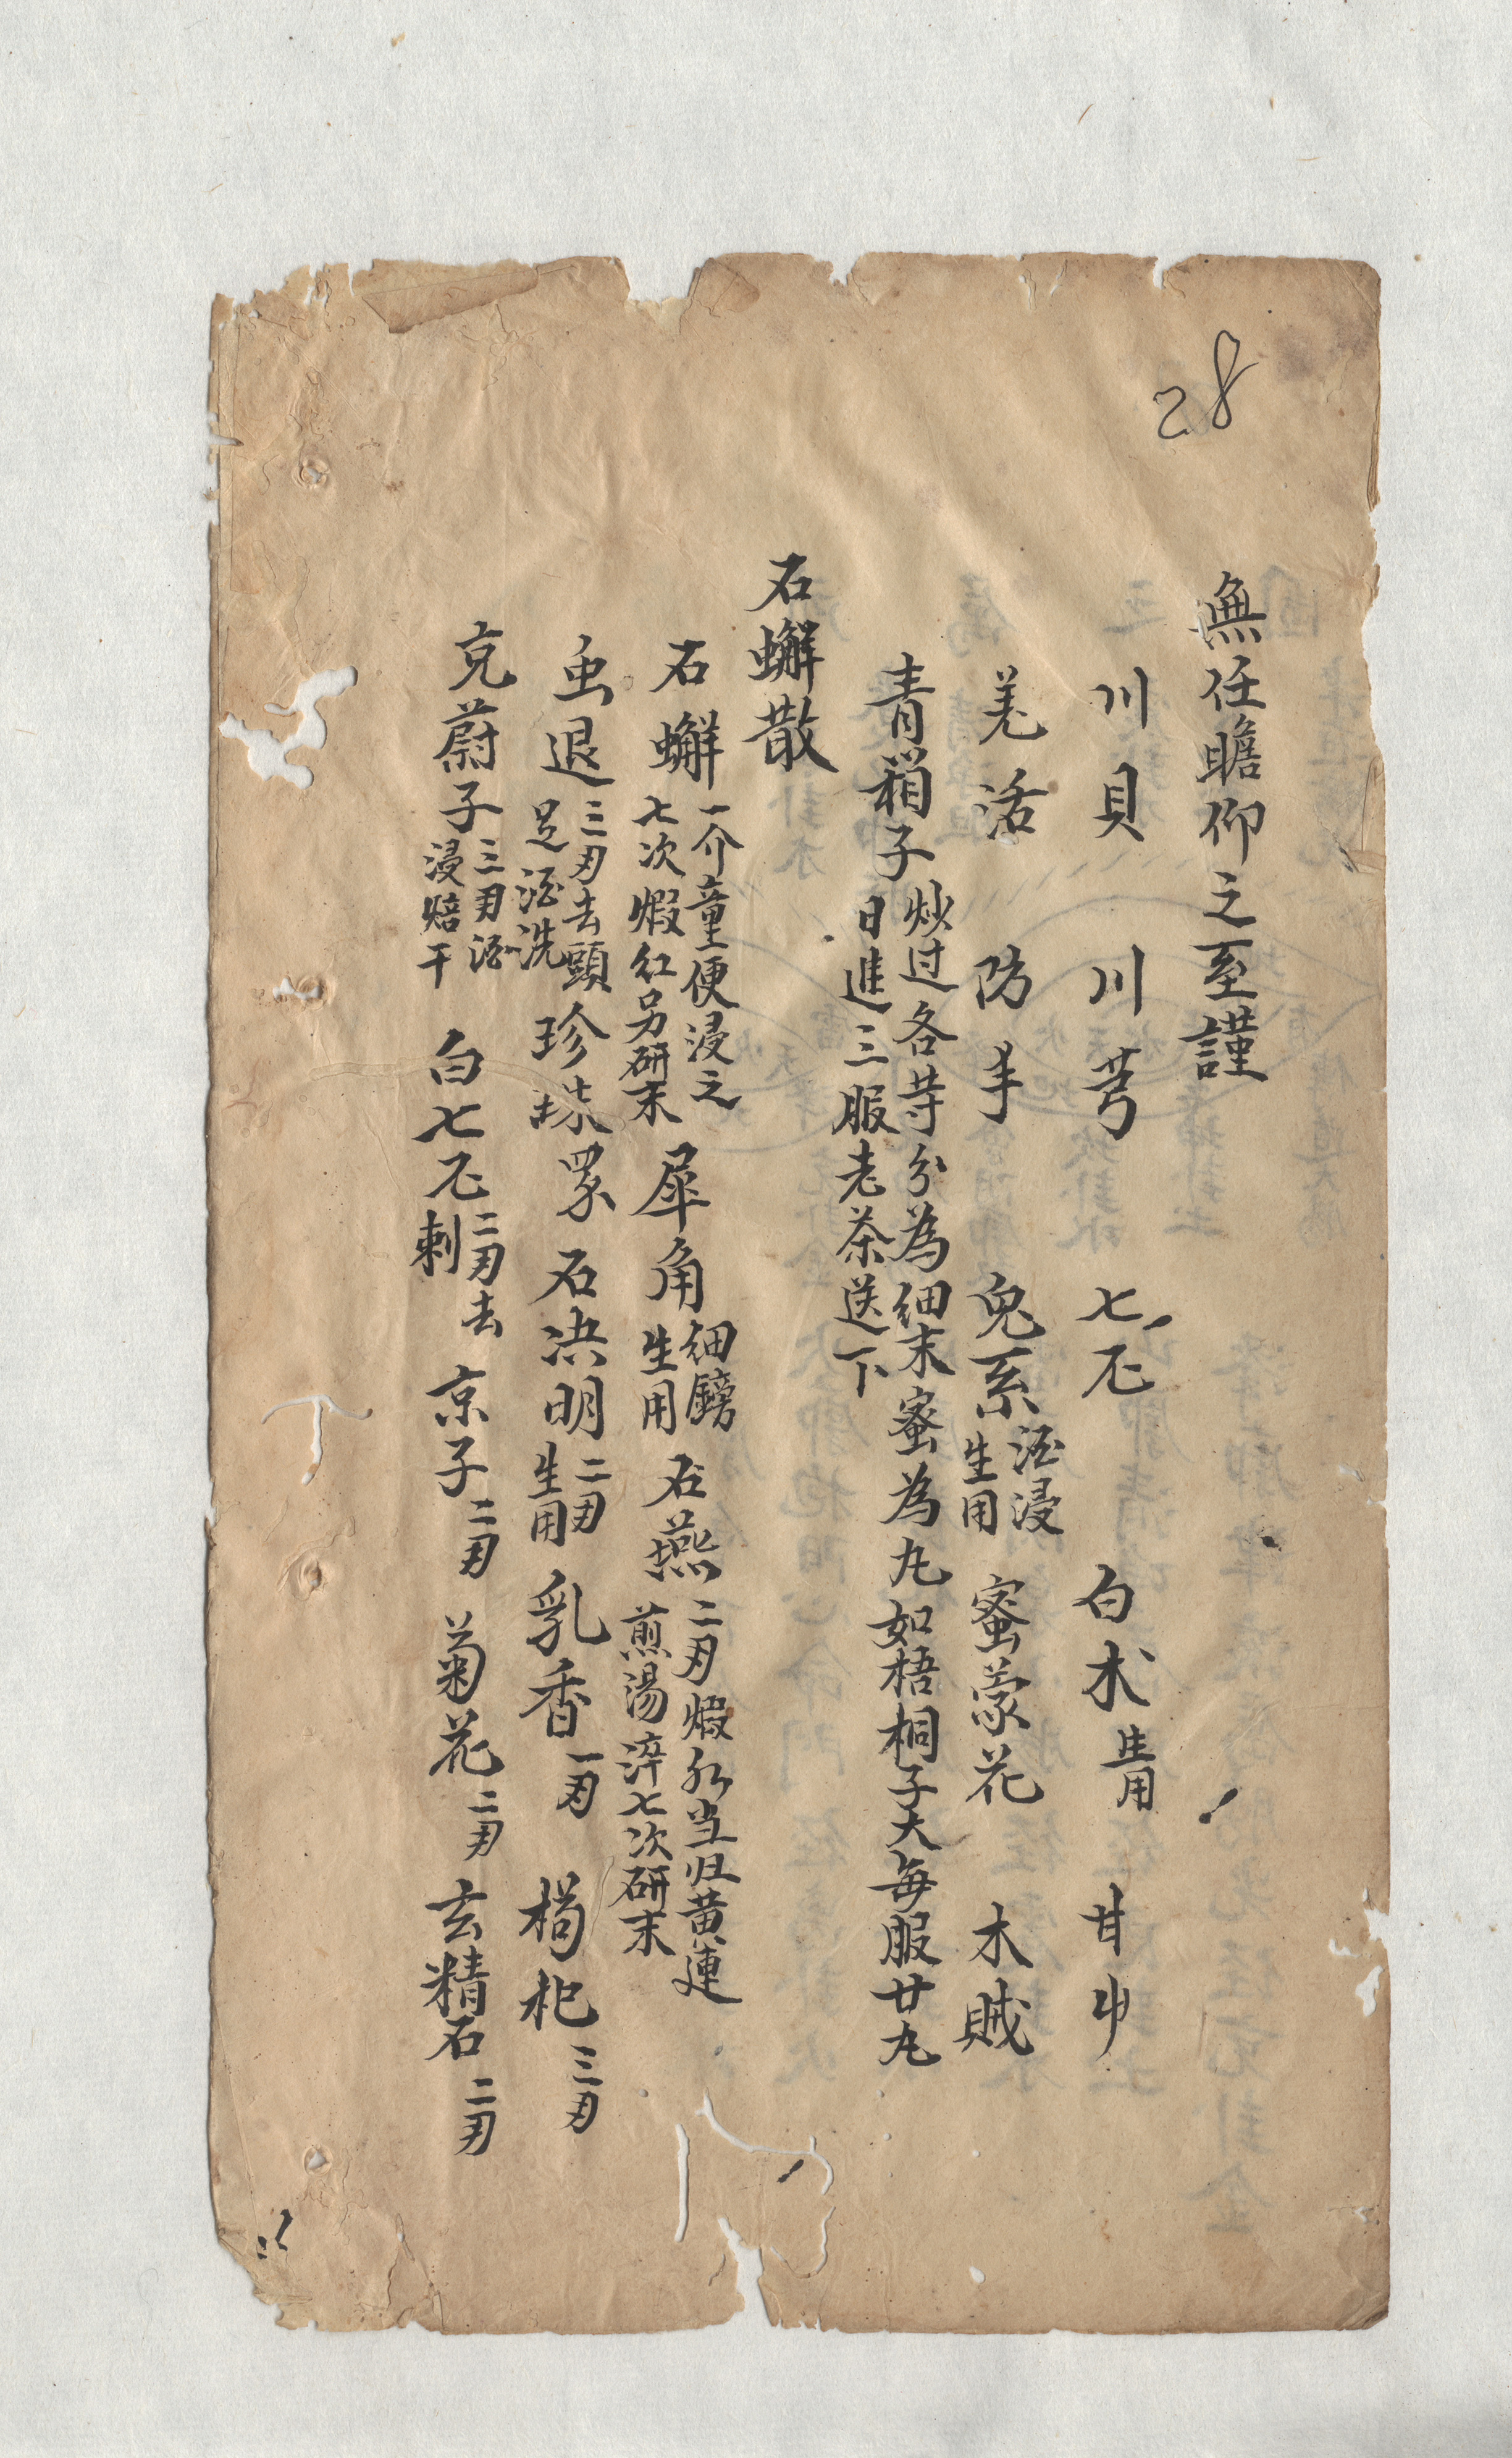 28
無任瞻仰之至謹
川貝 川芎 七厷 白术生用 甘屮
羗活 防丰 兔系酒浸生用 蜜蒙花 木賊
青葙子炒过各䓁分為細末蜜為丸如梧桐子大每服廿丸
日進三服老茶送下
石蠏散
石蠏一介童便浸之七次煆紅另研末 犀角細鎊生用 石燕二刄煆紅当归黄連煎湯淬七次研末
虫退三刄去頭足酒洗 珍珠 石决明二刄生用 乳香一刄 枸杞三刄
茺蔚子三刄酒浸焙干 白七二刄去刺 京子二刄 菊花二刄 玄精石二刄